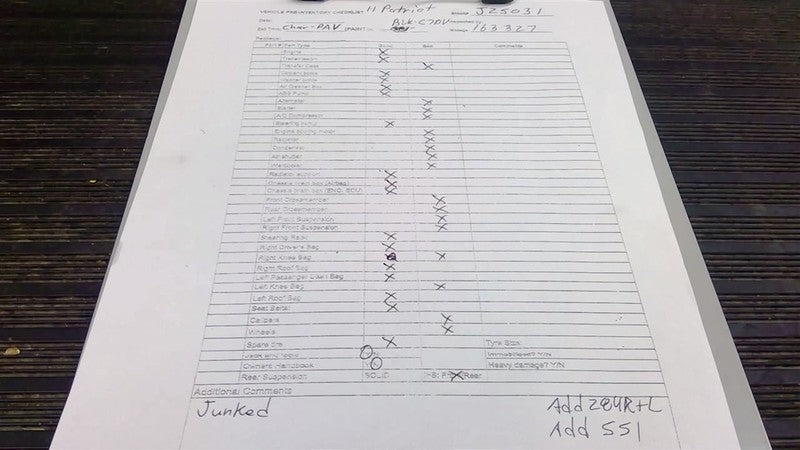 VEHICLE PRE-INVENTORY CHECKLIST 11 Patriot J25031
Date: BLK-C7DV
Char-PAV Mileage 163327
Part & Item Type Good Bad Comments
Engine X
Transmission X
Transfer Case X
X
X
Air Cleaner Box X
ABS Pump X
Alternator X
Starter X
A/C Compressor X
Steering X
Engine cooling motor X
Radiator X
Condenser X
Air shutter X
Intercooler X
Radiator support X
Chassis brain box (Airbag) X
Chassis brain box (ENG, ECU) X
Front Crossmember X
Rear Crossmember X
Left Front Suspension X
Right Front Suspension X
Steering Rack X
Right Driver's Bag X
Right Knee Bag X
Right Roof Bag X
Left Passenger Dash Bag X
Left Knee Bag X
Left Roof Bag X
Seat Belts X
Calipers X
Wheels X
Spare tire X Tyre Size:
Jack and tools Immobiliser? Y/N
Owners Handbook Heavy damage? Y/N
Rear Suspension SOLID Rear
Additional Comments
Junked Add 284R+L
Add 551